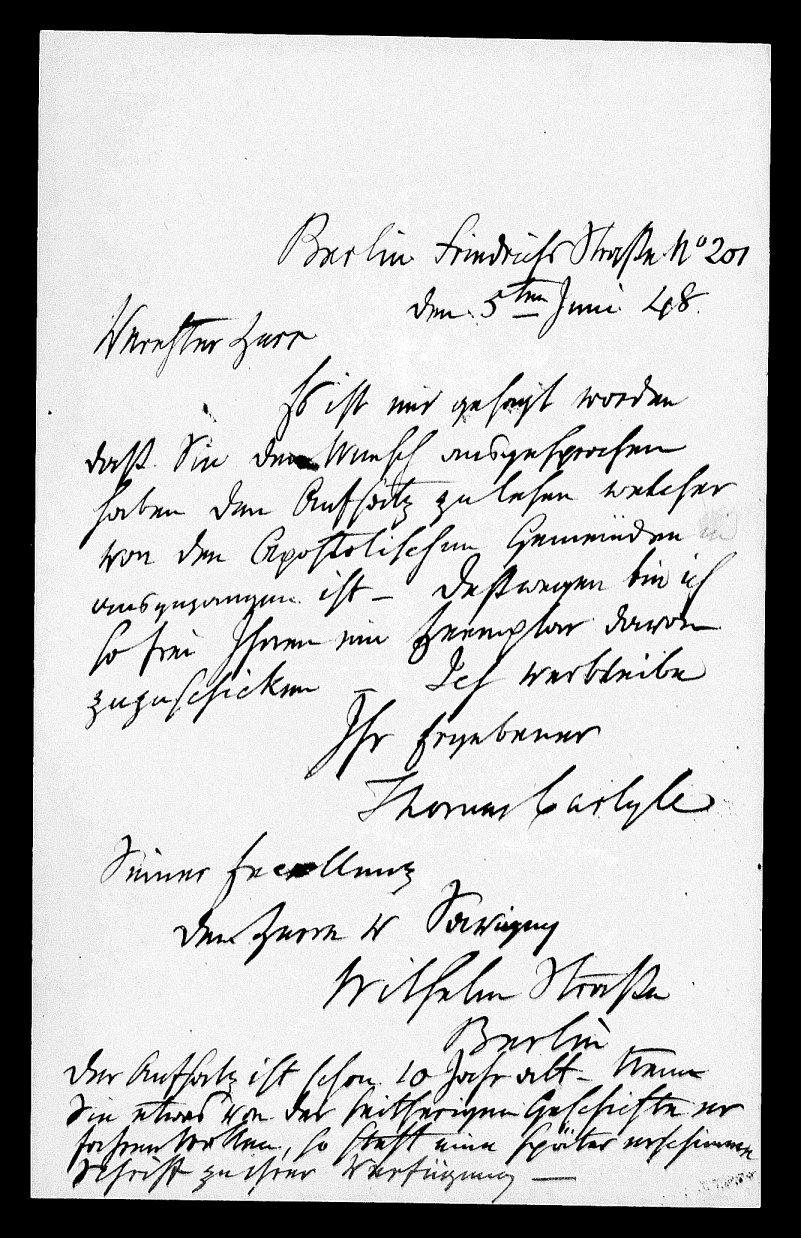 Berlin Friedrichs Straße No 201
den 5ten Juni 48.
Verehrter Herr
Es ist mir gesagt worden
daß Sie den Wunsch ausgesprochen
haben den Aufsatz zu lesen welcher
von den Apostolischen Gemeinden
ausgegangen ist – Deßwegen bin ich
so frei Ihnen ein Exemplar davon
zuzuschicken – Ich verbleibe
Ihr Ergebener
Thomas Carlyle
Seiner Excellenz
den Herrn v Savigny
Wilhelm Straße
Berlin
Der Aufsatz ist schon 10 Jahr alt – Wenn
Sie etwas von der seitherigen Geschichte er
fahren wollen, so steht eine später erschienene
Schrift zu ihrer Verfügung —